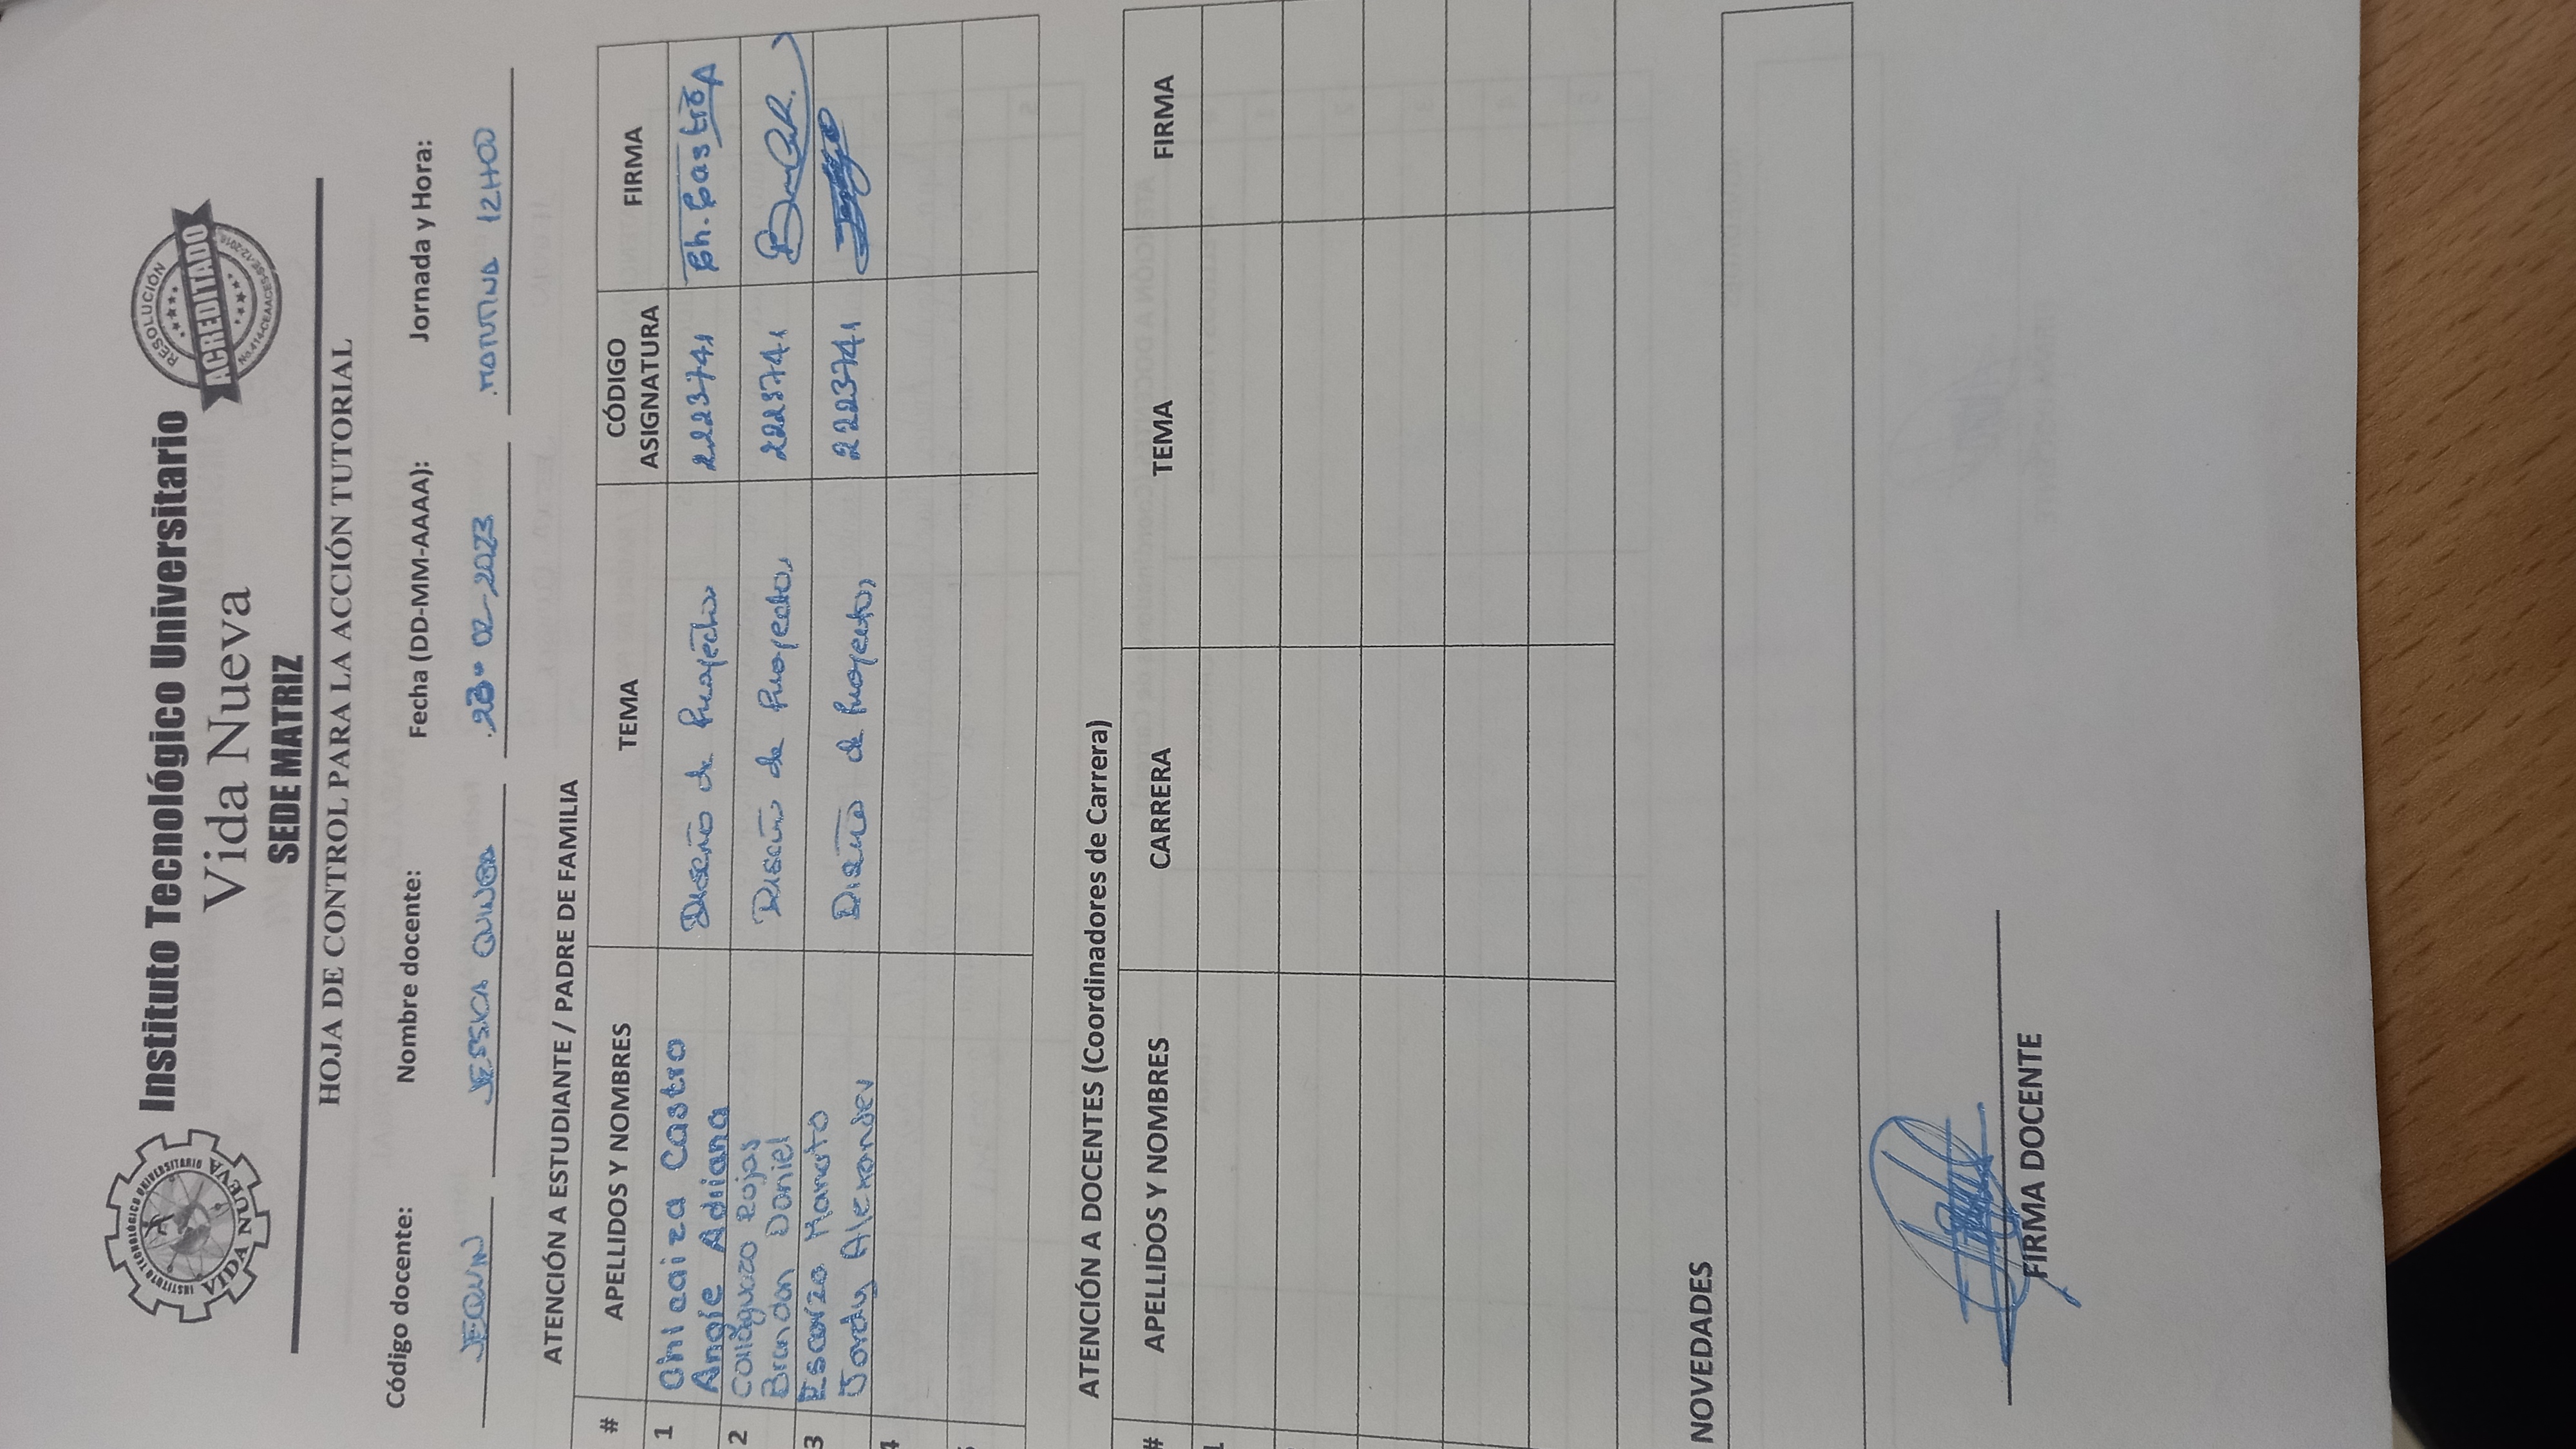 INSTITUTO TECNOLÓGICO UNIVERSITARIO
VIDA NUEVA
Instituto Tecnológico Universitario
Vida Nueva
SEDE MATRIZ
RESOLUCIÓN
ACREDITADO
No.414-CEAACES-SE-12-2016
HOJA DE CONTROL PARA LA ACCIÓN TUTORIAL
Código docente: Nombre docente: Fecha (DD-MM-AAAA): Jornada y Hora:
JEQUIN JESSICA QUINGA 23-02-2023 MATUTINA 12H00
ATENCIÓN A ESTUDIANTE / PADRE DE FAMILIA
# APELLIDOS Y NOMBRES TEMA CÓDIGO ASIGNATURA FIRMA
1 Chicaiza Castro
Angie Adriana Diseño de Proyectos 2223741 Ch. Castro A
2 Collaguazo Rojas
Brandon Daniel Diseño de Proyectos 2223741
3 Escorza Manoto
Jordy Alexander Diseño de Proyectos 2223741
4
ATENCIÓN A DOCENTES (Coordinadores de Carrera)
# APELLIDOS Y NOMBRES CARRERA TEMA FIRMA
1
NOVEDADES
FIRMA DOCENTE